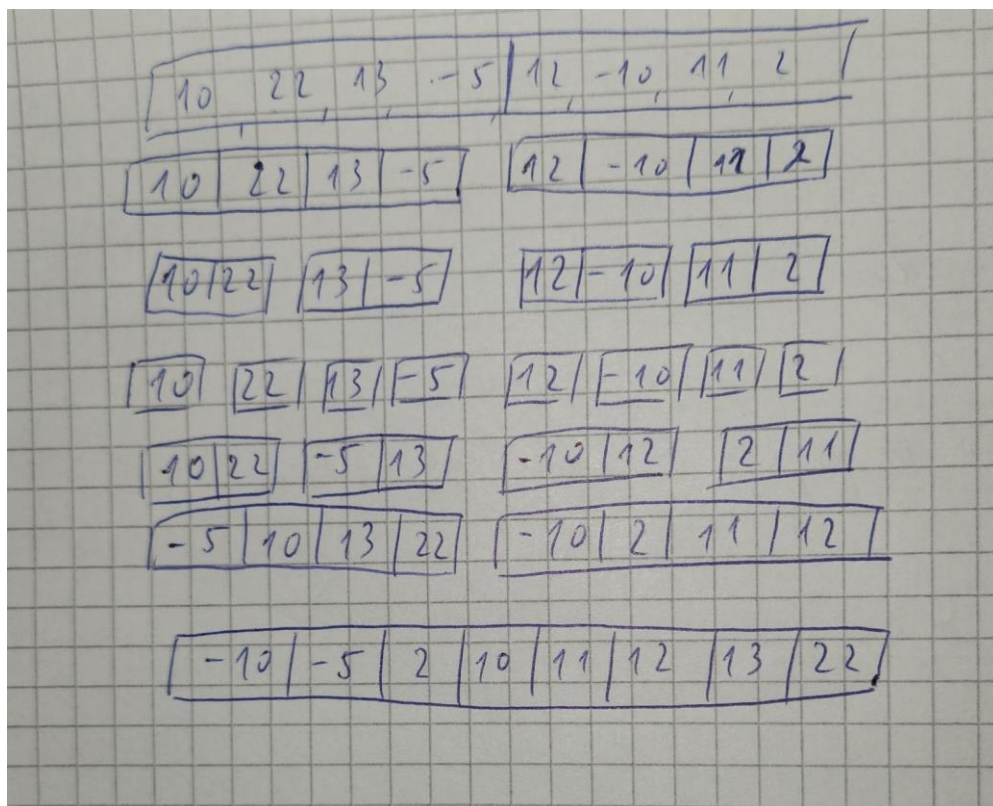 10, 22, 13, -5 12, -10, 11, 2
10 22 13 -5 12 -10 11 2
10 22 13 -5 12 -10 11 2
10 22 13 -5 12 -10 11 2
10 22 -5 13 -10 12 2 11
-5 10 13 22 -10 2 11 12
-10 -5 2 10 11 12 13 22